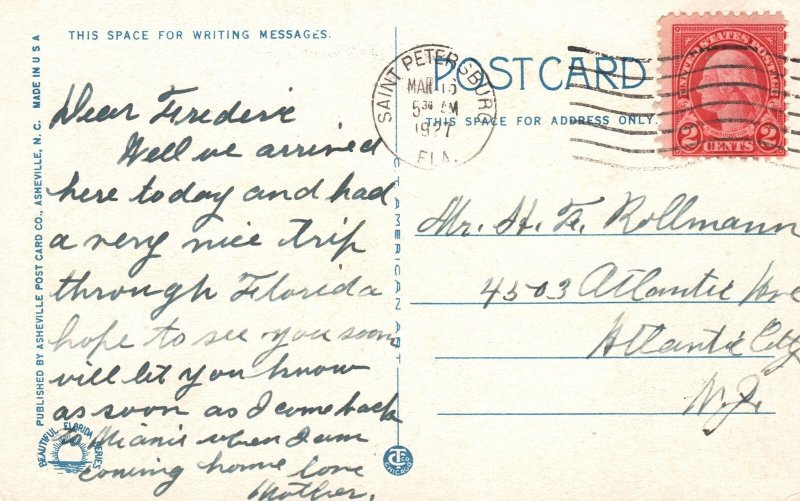 THIS SPACE FOR WRITING MESSAGES.
Dear Frederic
Well we arrived
here today and had
a very nice trip
through Florida
hope to see you soon
will let you know
as soon as I come back
to Miami when I am
coming home love
Mother.
PUBLISHED BY ASHEVILLE POST CARD CO., ASHEVILLE, N. C. MADE IN U S A
BEAUTIFUL FLORIDA SERIES
CT AMERICAN ART
CT CO
CHICAGO
SAINT PETERSBURG
MAR 15
5 30 AM
1927
FLA.
POST CARD
THIS SPACE FOR ADDRESS ONLY.
UNITED STATES POSTAGE
WASHINGTON
2 CENTS 2
Mr. H. F. Rollmann
4503 Atlantic Ave
Atlantic City
N.J.